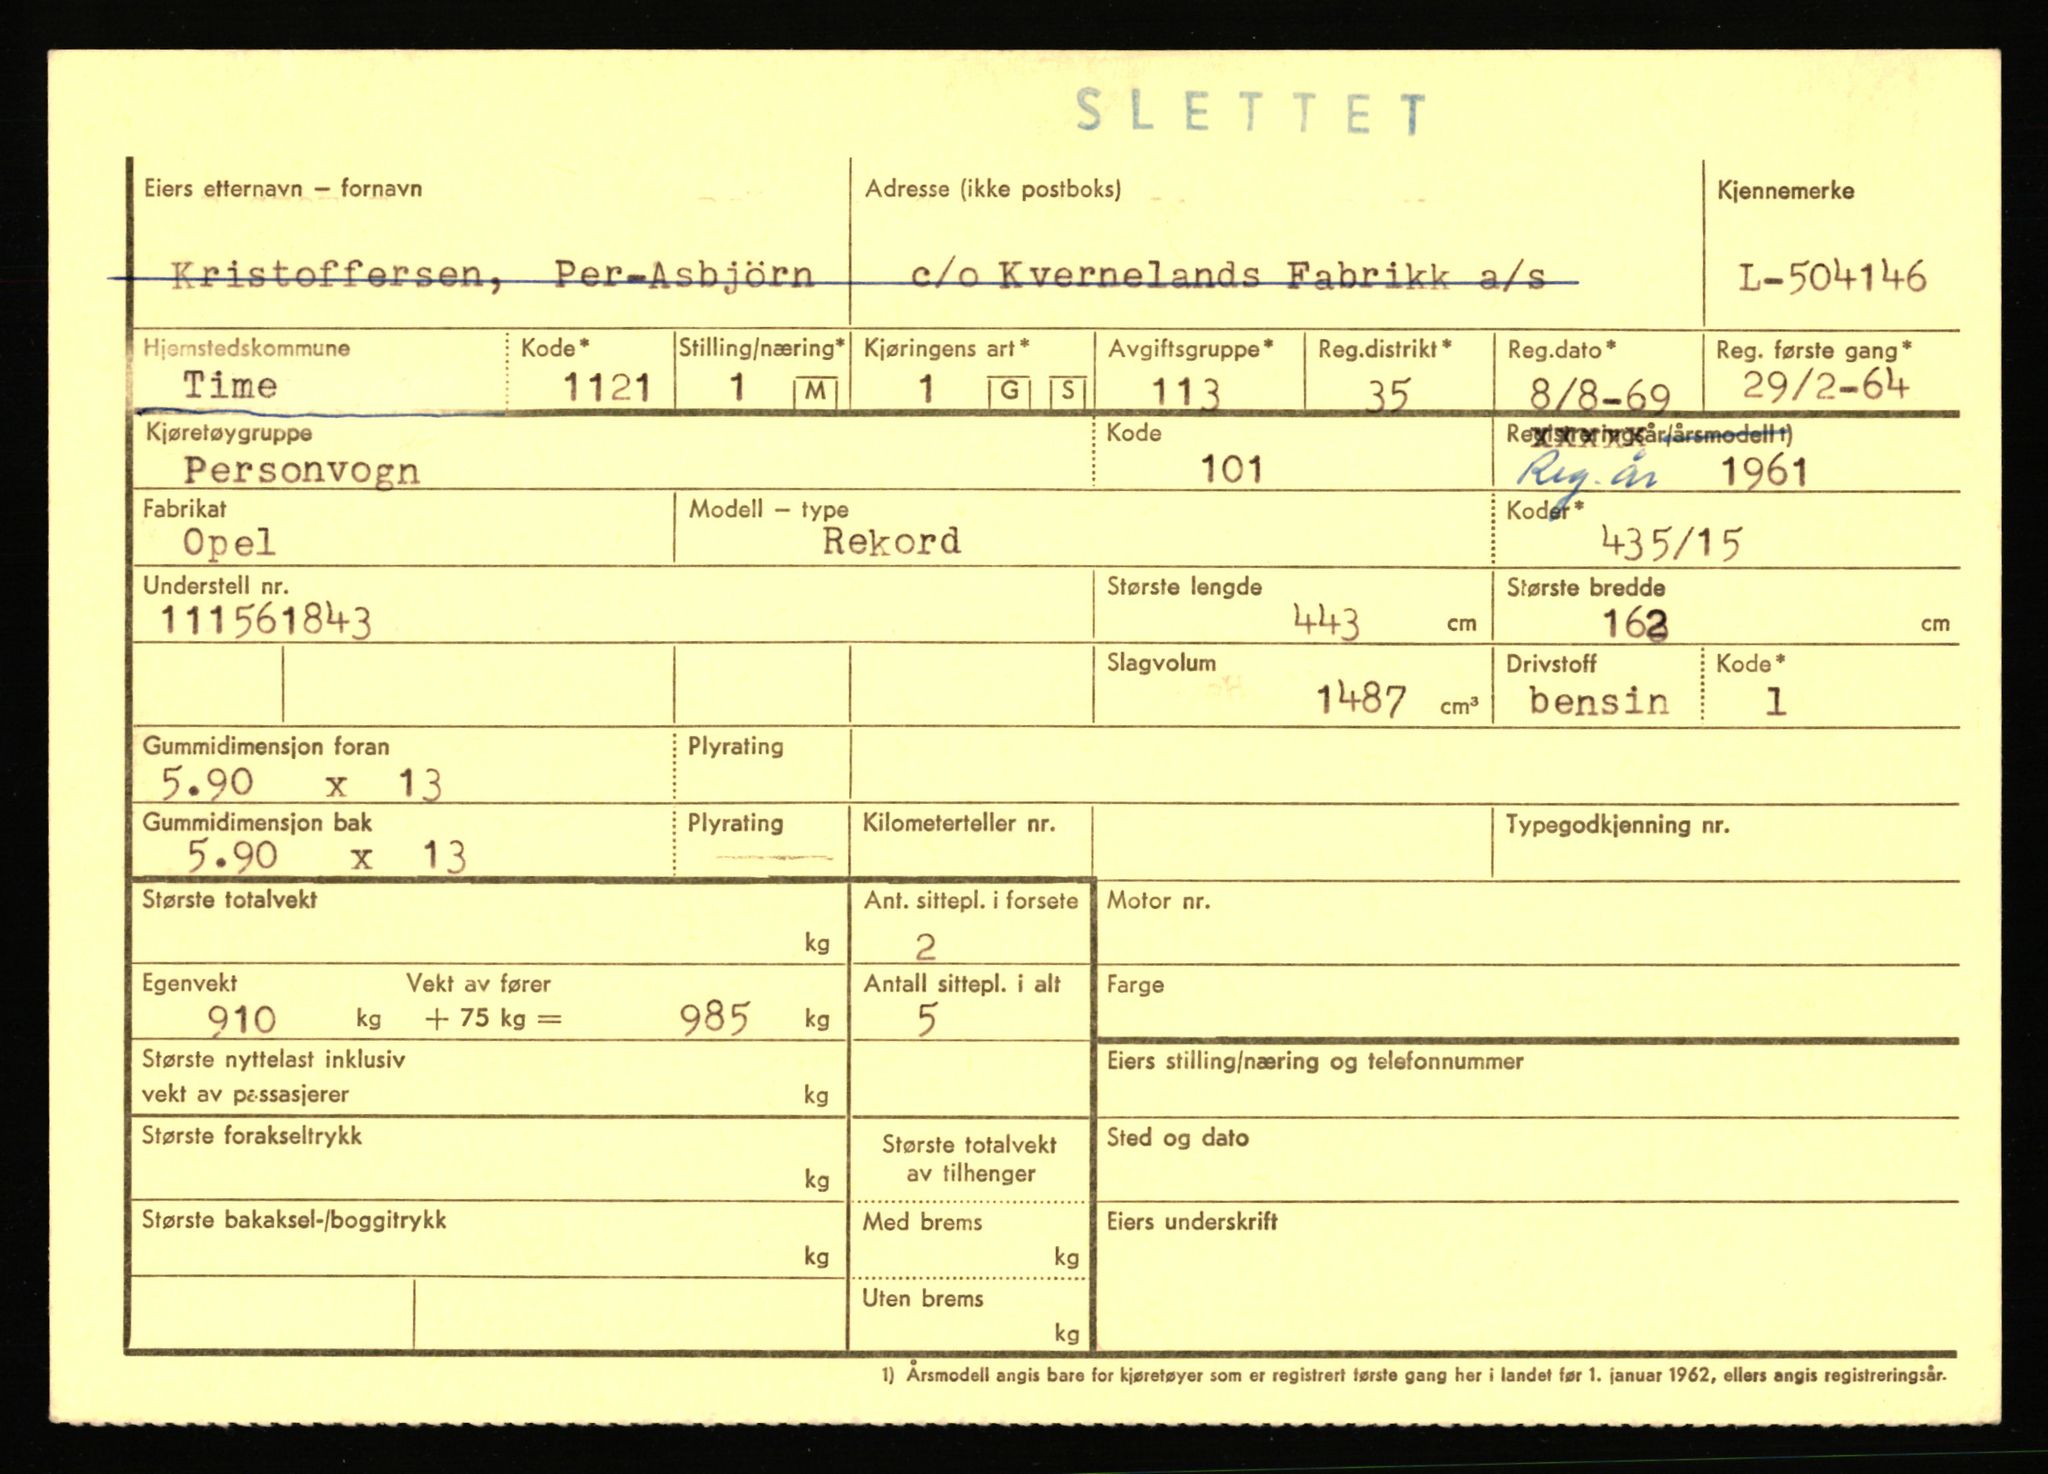 SLETTET
Eiers etternavn – fornavn Adresse (ikke postboks) Kjennemerke
Kristoffersen, Per-Asbjörn c/o Kvernelands Fabrikk a/s L-504146
Hjemstedskommune Kode* Stilling/næring* Kjøringens art* Avgiftsgruppe* Reg.distrikt* Reg.dato* Reg. første gang*
Time 1121 1 M 1 G S 113 35 8/8-69 29/2-64
Kjøretøygruppe Kode Registreringsår/årsmodell 1)
Personvogn 101 Reg. år 1961
Fabrikat Modell – type Koder*
Opel Rekord 435/15
Understell nr. Største lengde Største bredde
111561843 443 cm 162 cm
Slagvolum Drivstoff Kode*
1487 cm³ bensin 1
Gummidimensjon foran Plyrating
5.90 x 13
Gummidimensjon bak Plyrating Kilometerteller nr. Typegodkjenning nr.
5.90 x 13
Største totalvekt Ant. sittepl. i forsete Motor nr.
kg 2
Egenvekt Vekt av fører Antall sittepl. i alt Farge
910 kg + 75 kg = 985 kg 5
Største nyttelast inklusiv Eiers stilling/næring og telefonnummer
vekt av passasjerer kg
Største forakseltrykk Største totalvekt Sted og dato
kg av tilhenger
Største bakaksel-/boggitrykk Med brems Eiers underskrift
kg kg
Uten brems
kg
1) Årsmodell angis bare for kjøretøyer som er registrert første gang her i landet før 1. januar 1962, ellers angis registreringsår.